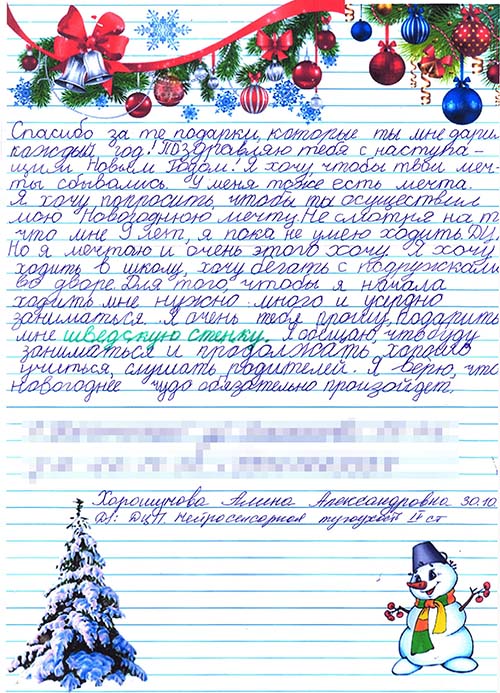 Спасибо за те подарки, которые ты мне дари
каждый год! Поздравляю тебя с наступа-
щим Новым Годом! Я хочу, чтобы твои меч-
ты сбывались. У меня тоже есть мечта.
Я хочу попросить, чтобы ты осуществил
мою Новогоднюю мечту. Не смотня на т
что мне 9 лет, я пока не умею ходить. ДЦ
Но я мечтаю и очень этого хочу. Я хочу
ходить в школу, хочу бегать с подружками
во дворе. Для того, чтобы я начала
ходить мне нужно много и усердно
заниматься. Я очень тебя прошу, подарить
мне шведскую стенку. Я обещаю, что буду
заниматься и продолжать хорошо
учиться, слушать родителей. Я верю, что
новогоднее чудо обязательно произойдет.
Хорошунова Алина Александровна 30.10.
Ds: ДЦП. Нейросенсорная тугоухость IV ст